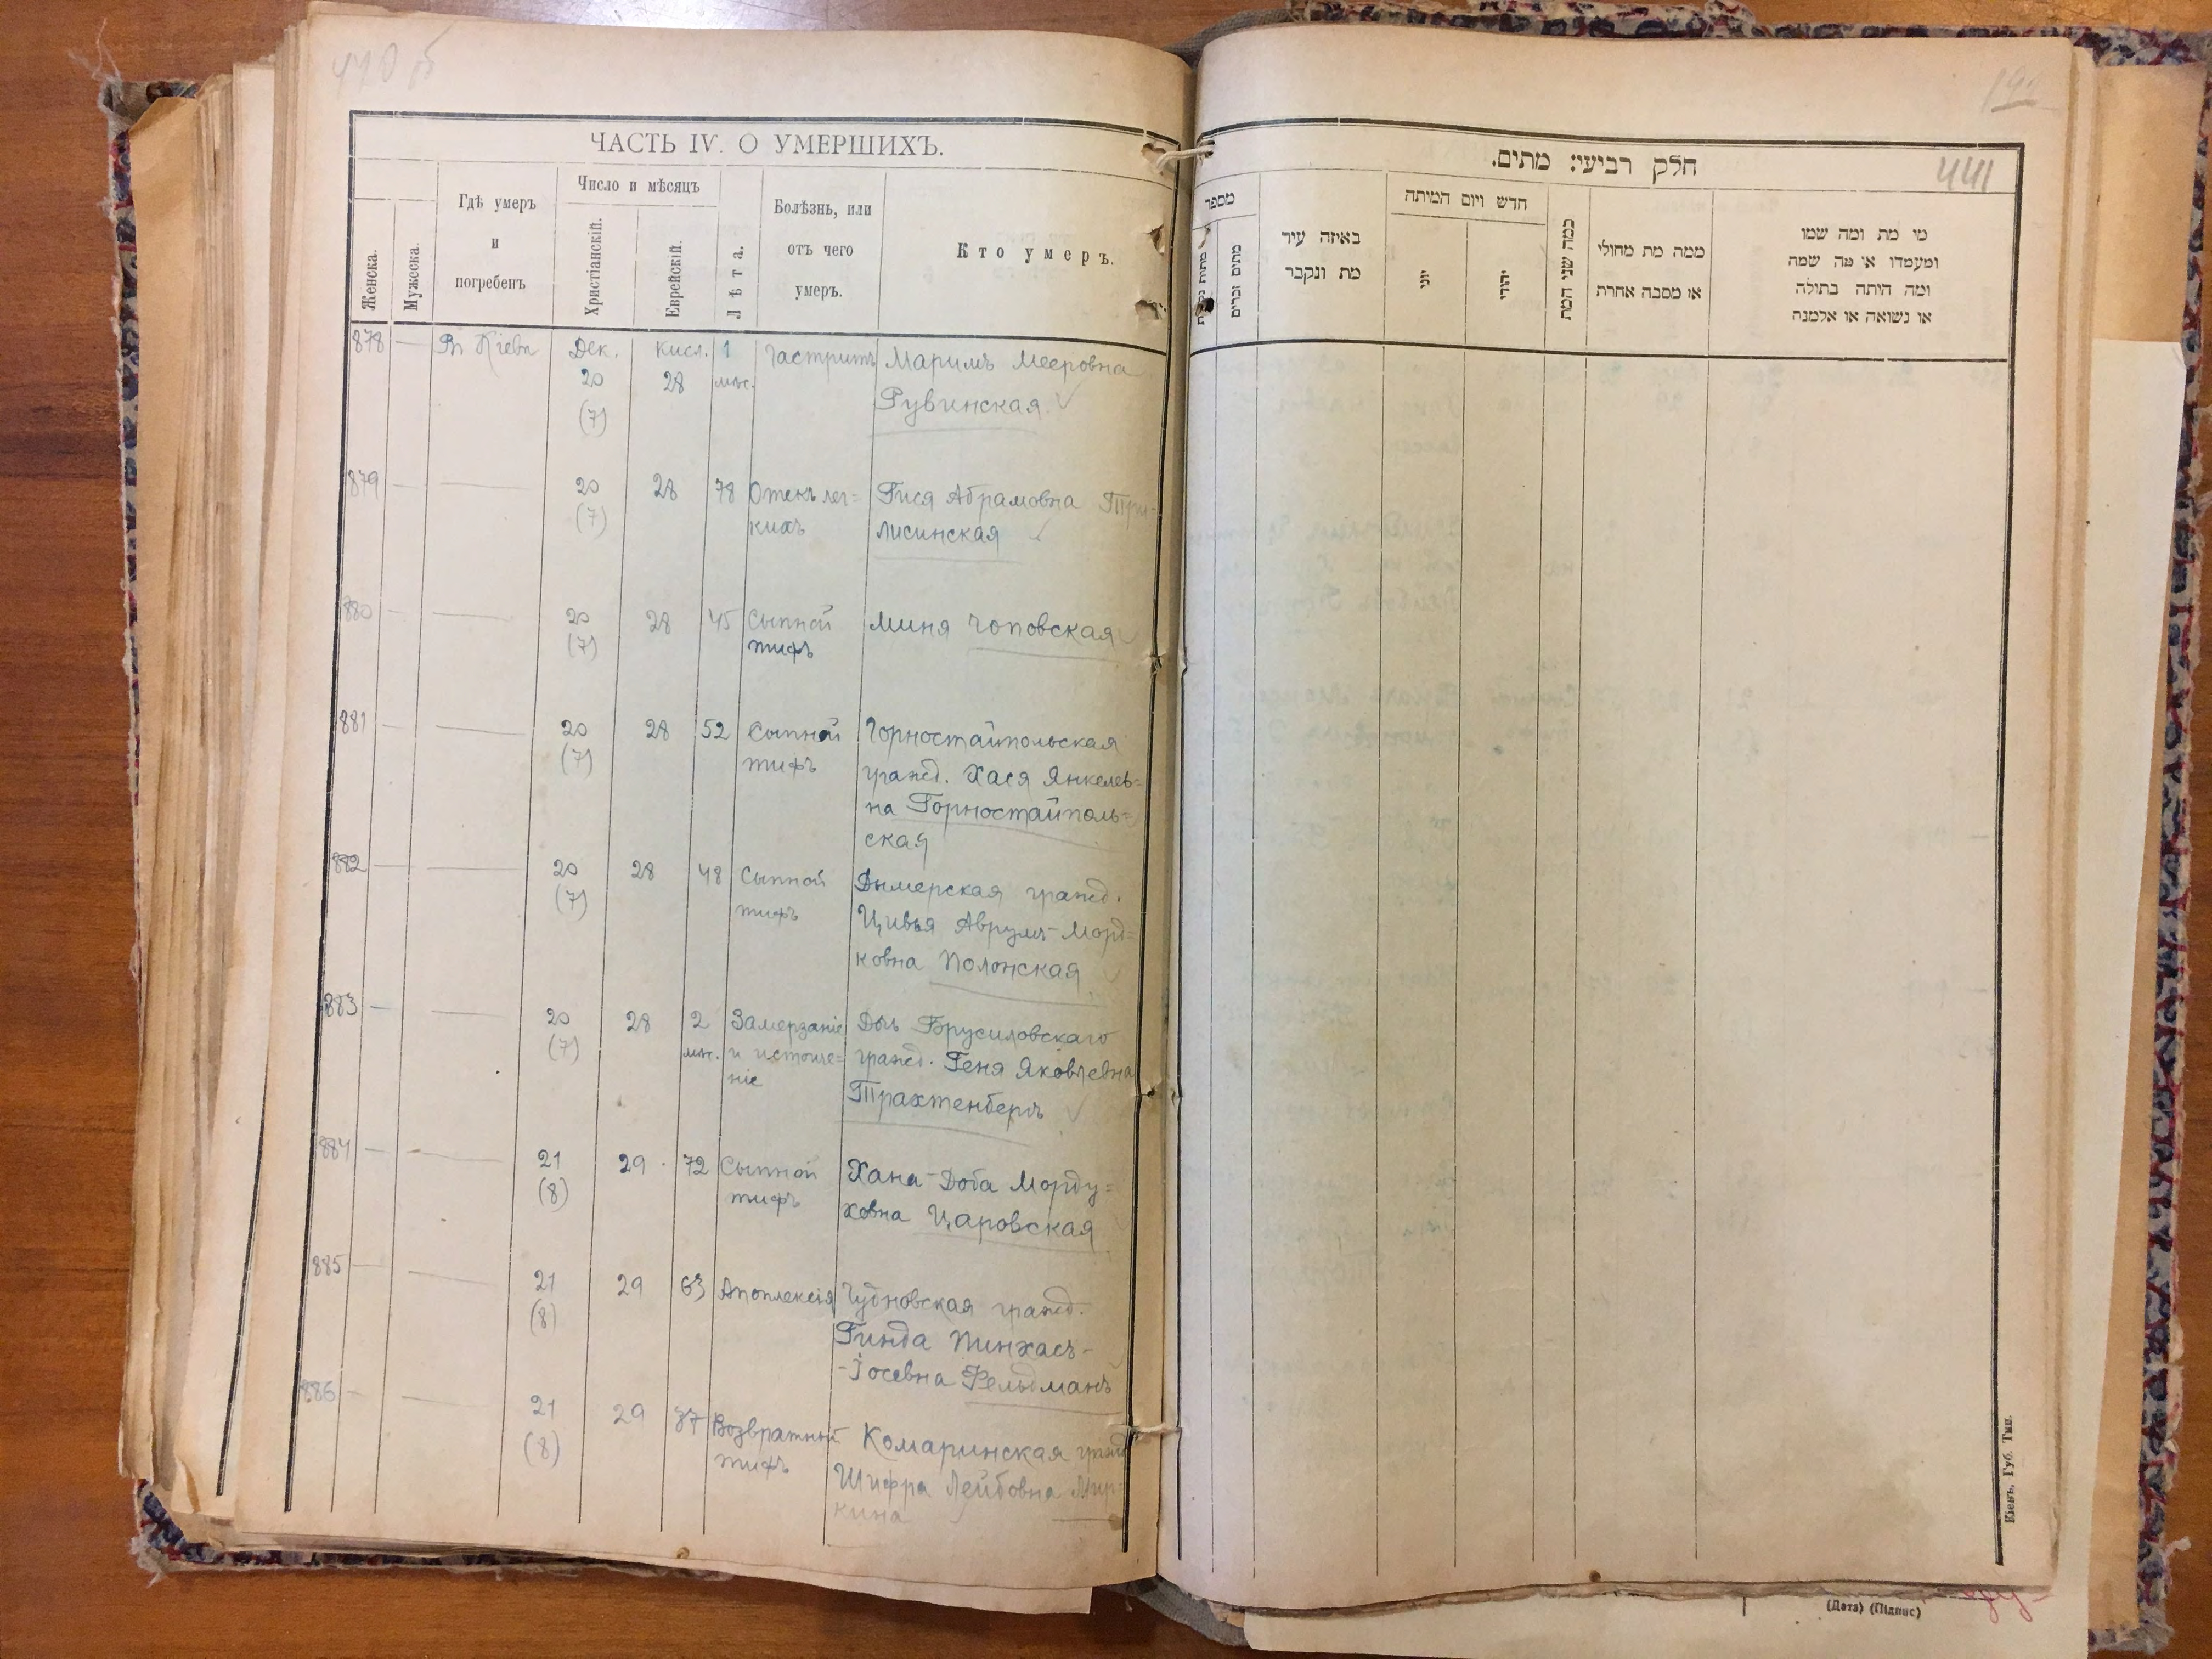 440 об
ЧАСТЬ IV. О УМЕРШИХЪ.
Женска.
Мужеска.
Гдѣ умеръ
и
погребенъ
Число и мѣсяцъ
Христіанскій.
Еврейскій.
Лѣта.
Болѣзнь, или
отъ чего
умеръ.
Кто умеръ.
878 — Въ Кіевѣ Дек. Кисл. 1 Гастритъ Маримъ Мееровна
20 28 мѣс. Рувинская
(7)
879 — — 20 28 78 Отекъ лег= Гися Абрамовна При-
(7) кихъ лисинская
880 — — 20 28 45 Сыпной Миня Чоповская
(7) тифъ
881 — — 20 28 52 Сыпной Горностайпольская
(7) тифъ гражд. Хася Янкелев=
на Горностайполь=
ская
882 — — 20 28 48 Сыпной Дымерская гражд.
(7) тифъ Цивья Аврумъ-Морд=
ковна Полонская
883 — — 20 28 2 Замерзаніе Дочь Брусиловскаго
(7) мѣс. и истоще= гражд. Геня Яковлевна
ніе Трахтенбергъ
884 — — 21 29 72 Сыпной Хана-Доба Морду=
(8) тифъ ховна Царовская
885 — — 21 29 63 Апоплексія Чудновская гражд.
(8) Гинда Пинхасъ-
-Іосевна Фельдманъ
886 — — 21 29 37 Возвратный Комаринская гражд
(8) тифъ Шифра Лейбовна Мир-
кина
חלק רביעי: מתים.
441
מספר
מתים זכרים
באיזה עיר
מת ונקבר
חדש ויום המיתה
יוני
יהודי
כמה שני המת
ממה מת מחולי
או מסבה אחרת
מי מת ומה שמו
ומעמדו או מה שמה
ומה היתה בתולה
או נשואה או אלמנה
Кіевъ. Губ. Тип.
(Дата) (Підпис)